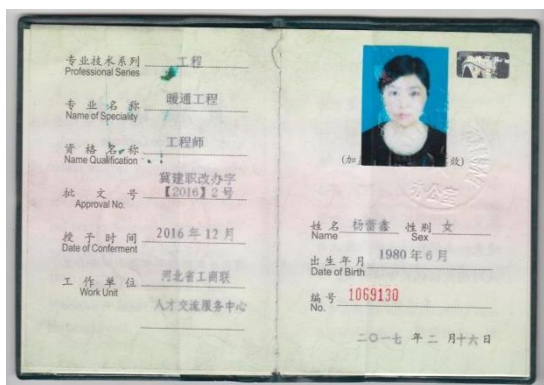 专业技术系列 工程
Professional Series
专业名称 暖通工程
Name of Speciality
资格名称 工程师
Name Qualification
冀建职改办字
批文号 【2016】2号
Approval No.
授予时间 2016年12月
Date of Conferment
工作单位 河北省工商联
Work Unit
人才交流服务中心
(加 效)
办公室
姓名 杨蕾鑫 性别 女
Name Sex
出生年月 1980年6月
Date of Birth
编号 1069130
No.
二〇一七 年 二 月十六日